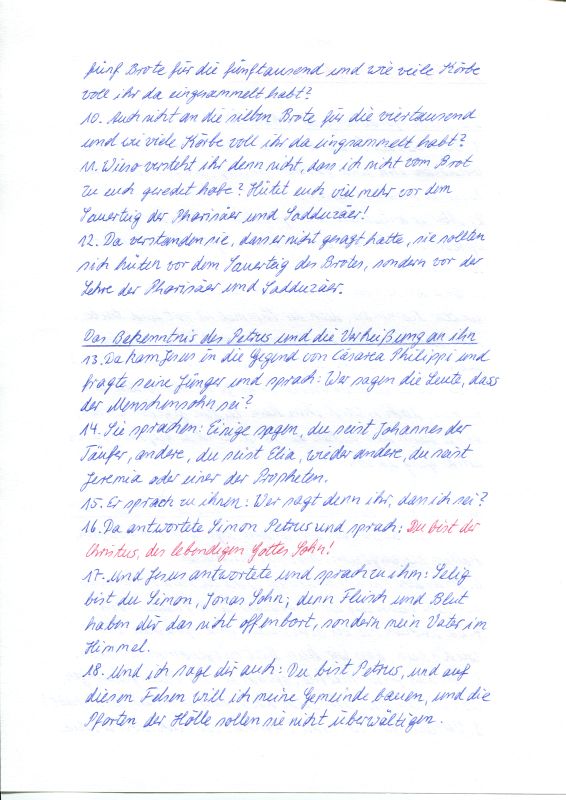 fünf Brote für die fünftausend und wie viele Körbe
voll ihr da eingesammelt habt?
10. Auch nicht an die sieben Brote für die viertausend
und wie viele Körbe voll ihr da eingsammelt habt?
11. Wieso versteht ihr denn nicht, dass ich nicht vom Brot
zu euch geredet habe? Hütet euch viel mehr vor dem
Sauerteig der Pharisäer und Sadduzäer!
12. Da verstanden sie, dass er nicht gesagt hatte, sie sollten
sich hüten vor dem Sauerteig des Brotes, sondern vor der
Lehre der Pharisäer und Sadduzäer.
Das Bekenntnis des Petrus und die Verheißung an ihn
13. Da kam Jesus in die Gegend von Cäsarea Philippi und
fragte seine Jünger und sprach: Wer sagen die Leute, dass
der Menschensohn sei?
14. Sie sprachen: Einige sagen, du seist Johannes der
Täufer, andere, du seist Elia, wieder andere, du seist
Jeremia oder einer der Propheten.
15. Er sprach zu ihnen: Wer sagt denn ihr, dass ich sei?
16. Da antwortete Simon Petrus und sprach: Du bist der
Christus, des lebendigen Gottes Sohn!
17. Und Jesus antwortete und sprach zu ihm: Selig
bist du Simon, Jonas Sohn; denn Fleisch und Blut
haben dir das nicht offenbart, sondern mein Vater im
Himmel.
18. Und ich sage dir auch: Du bist Petrus, und auf
diesen Felsen will ich meine Gemeinde bauen, und die
Pforten der Hölle sollen sie nicht überwältigen.